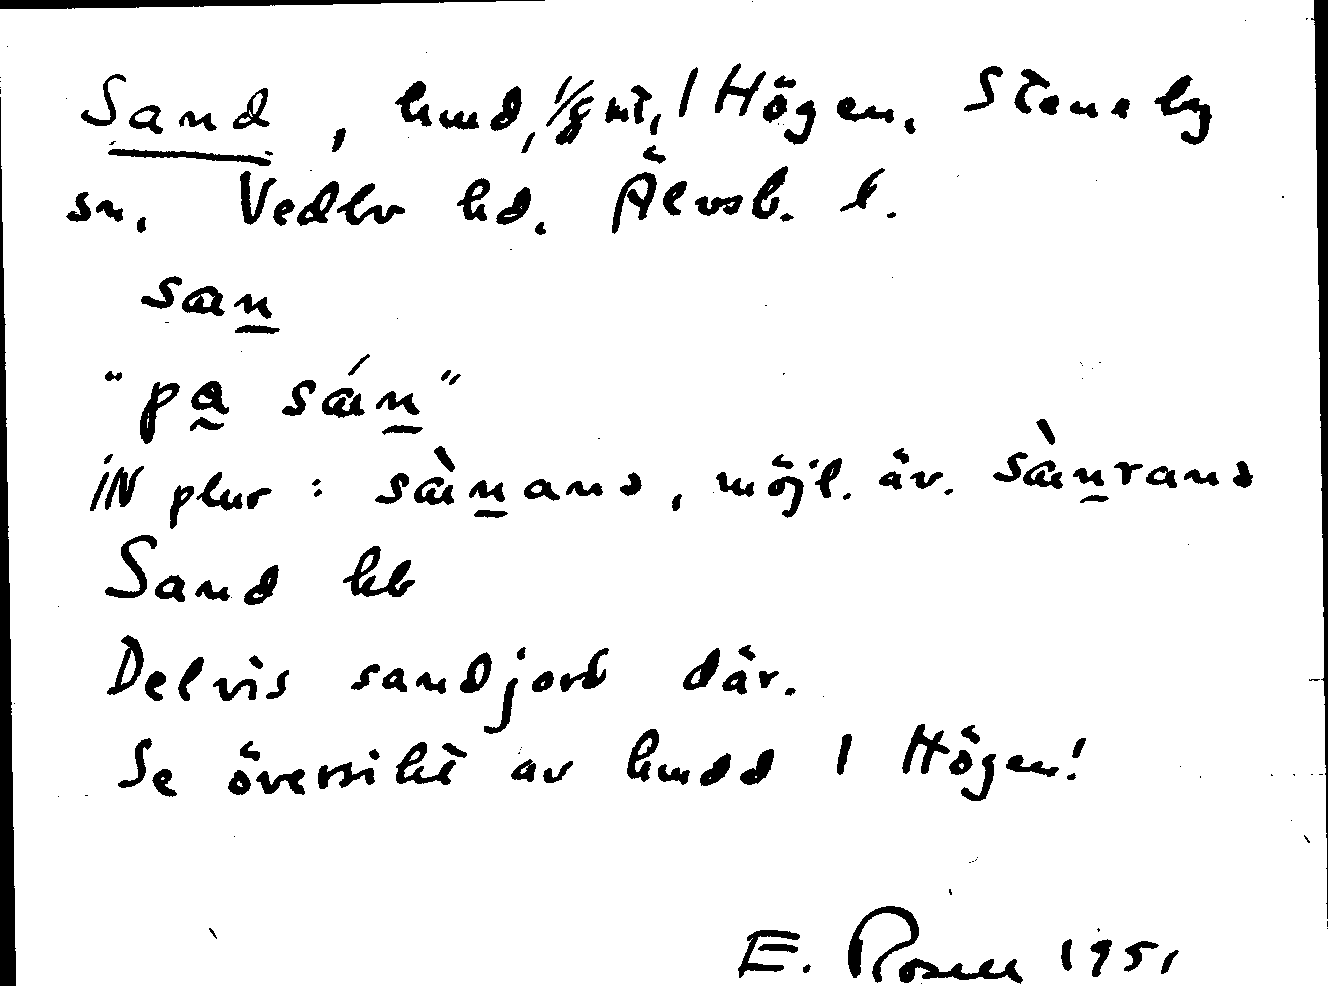 Sand, hmd, 1/8 mt, 1 Högen, Steneby
sn. Vedbo hd. Älvsb. l.
san
"pa sán"
IN plur: sànanə, möjl. äv. sànranə
Sand kb
Delvis sandjord där.
Se översikt av hmdd 1 Högen!
E. Rosell 1951